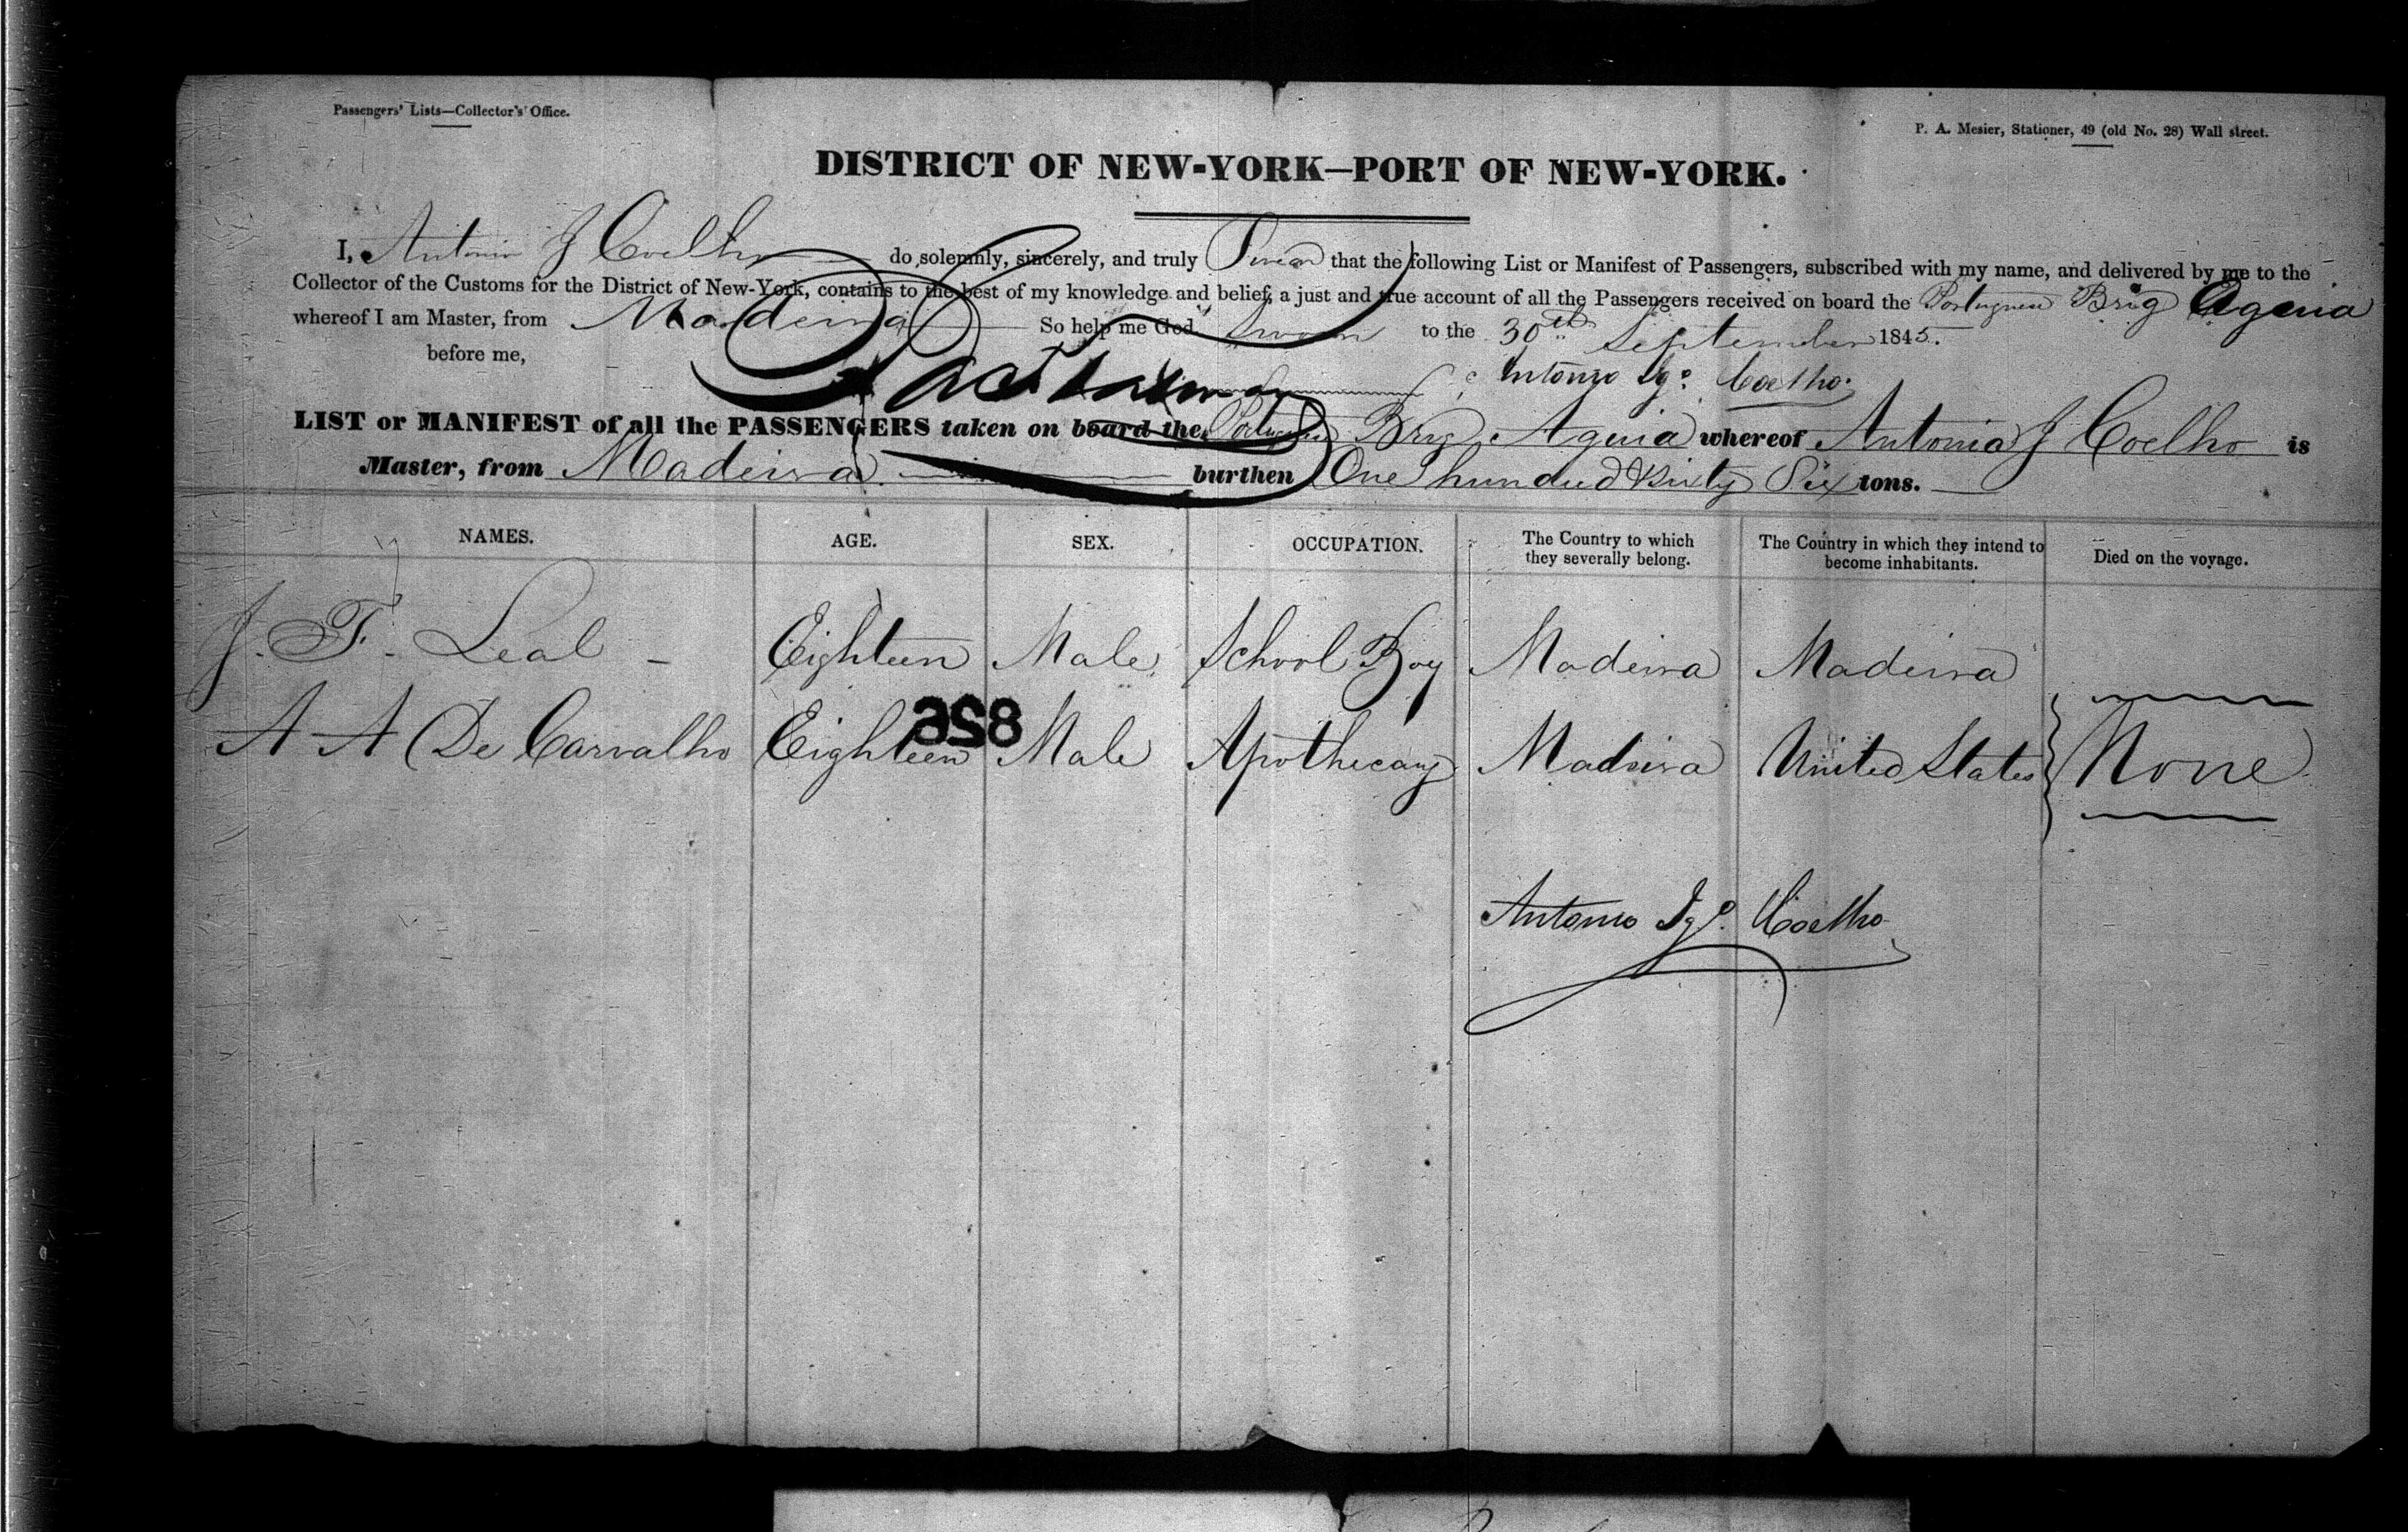 Passengers' Lists—Collector's Office.
P. A. Mesier, Stationer, 49 (old No. 28) Wall street.
DISTRICT OF NEW-YORK—PORT OF NEW-YORK.
I, Antonio J Coelho do solemnly, sincerely, and truly Swear that the following List or Manifest of Passengers, subscribed with my name, and delivered by me to the
Collector of the Customs for the District of New-York, contains to the best of my knowledge and belief, a just and true account of all the Passengers received on board the Portuguese Brig Aguia
whereof I am Master, from Madeira So help me God Sworn to the 30th September 1845.
before me,
Antonio Igo. Coelho.
LIST or MANIFEST of all the PASSENGERS taken on board the Portuguese Brig Aguia whereof Antonia J Coelho is
Master, from Madeira. burthen One hundred Sixty Six tons.
NAMES. AGE. SEX. OCCUPATION. The Country to which they severally belong. The Country in which they intend to become inhabitants. Died on the voyage.
J. F. Leal - Eighteen Male School Boy Madeira Madeira
A A De Carvalho Eighteen Male Apothecary Madeira United States None
828
Antonio Igo. Coelho